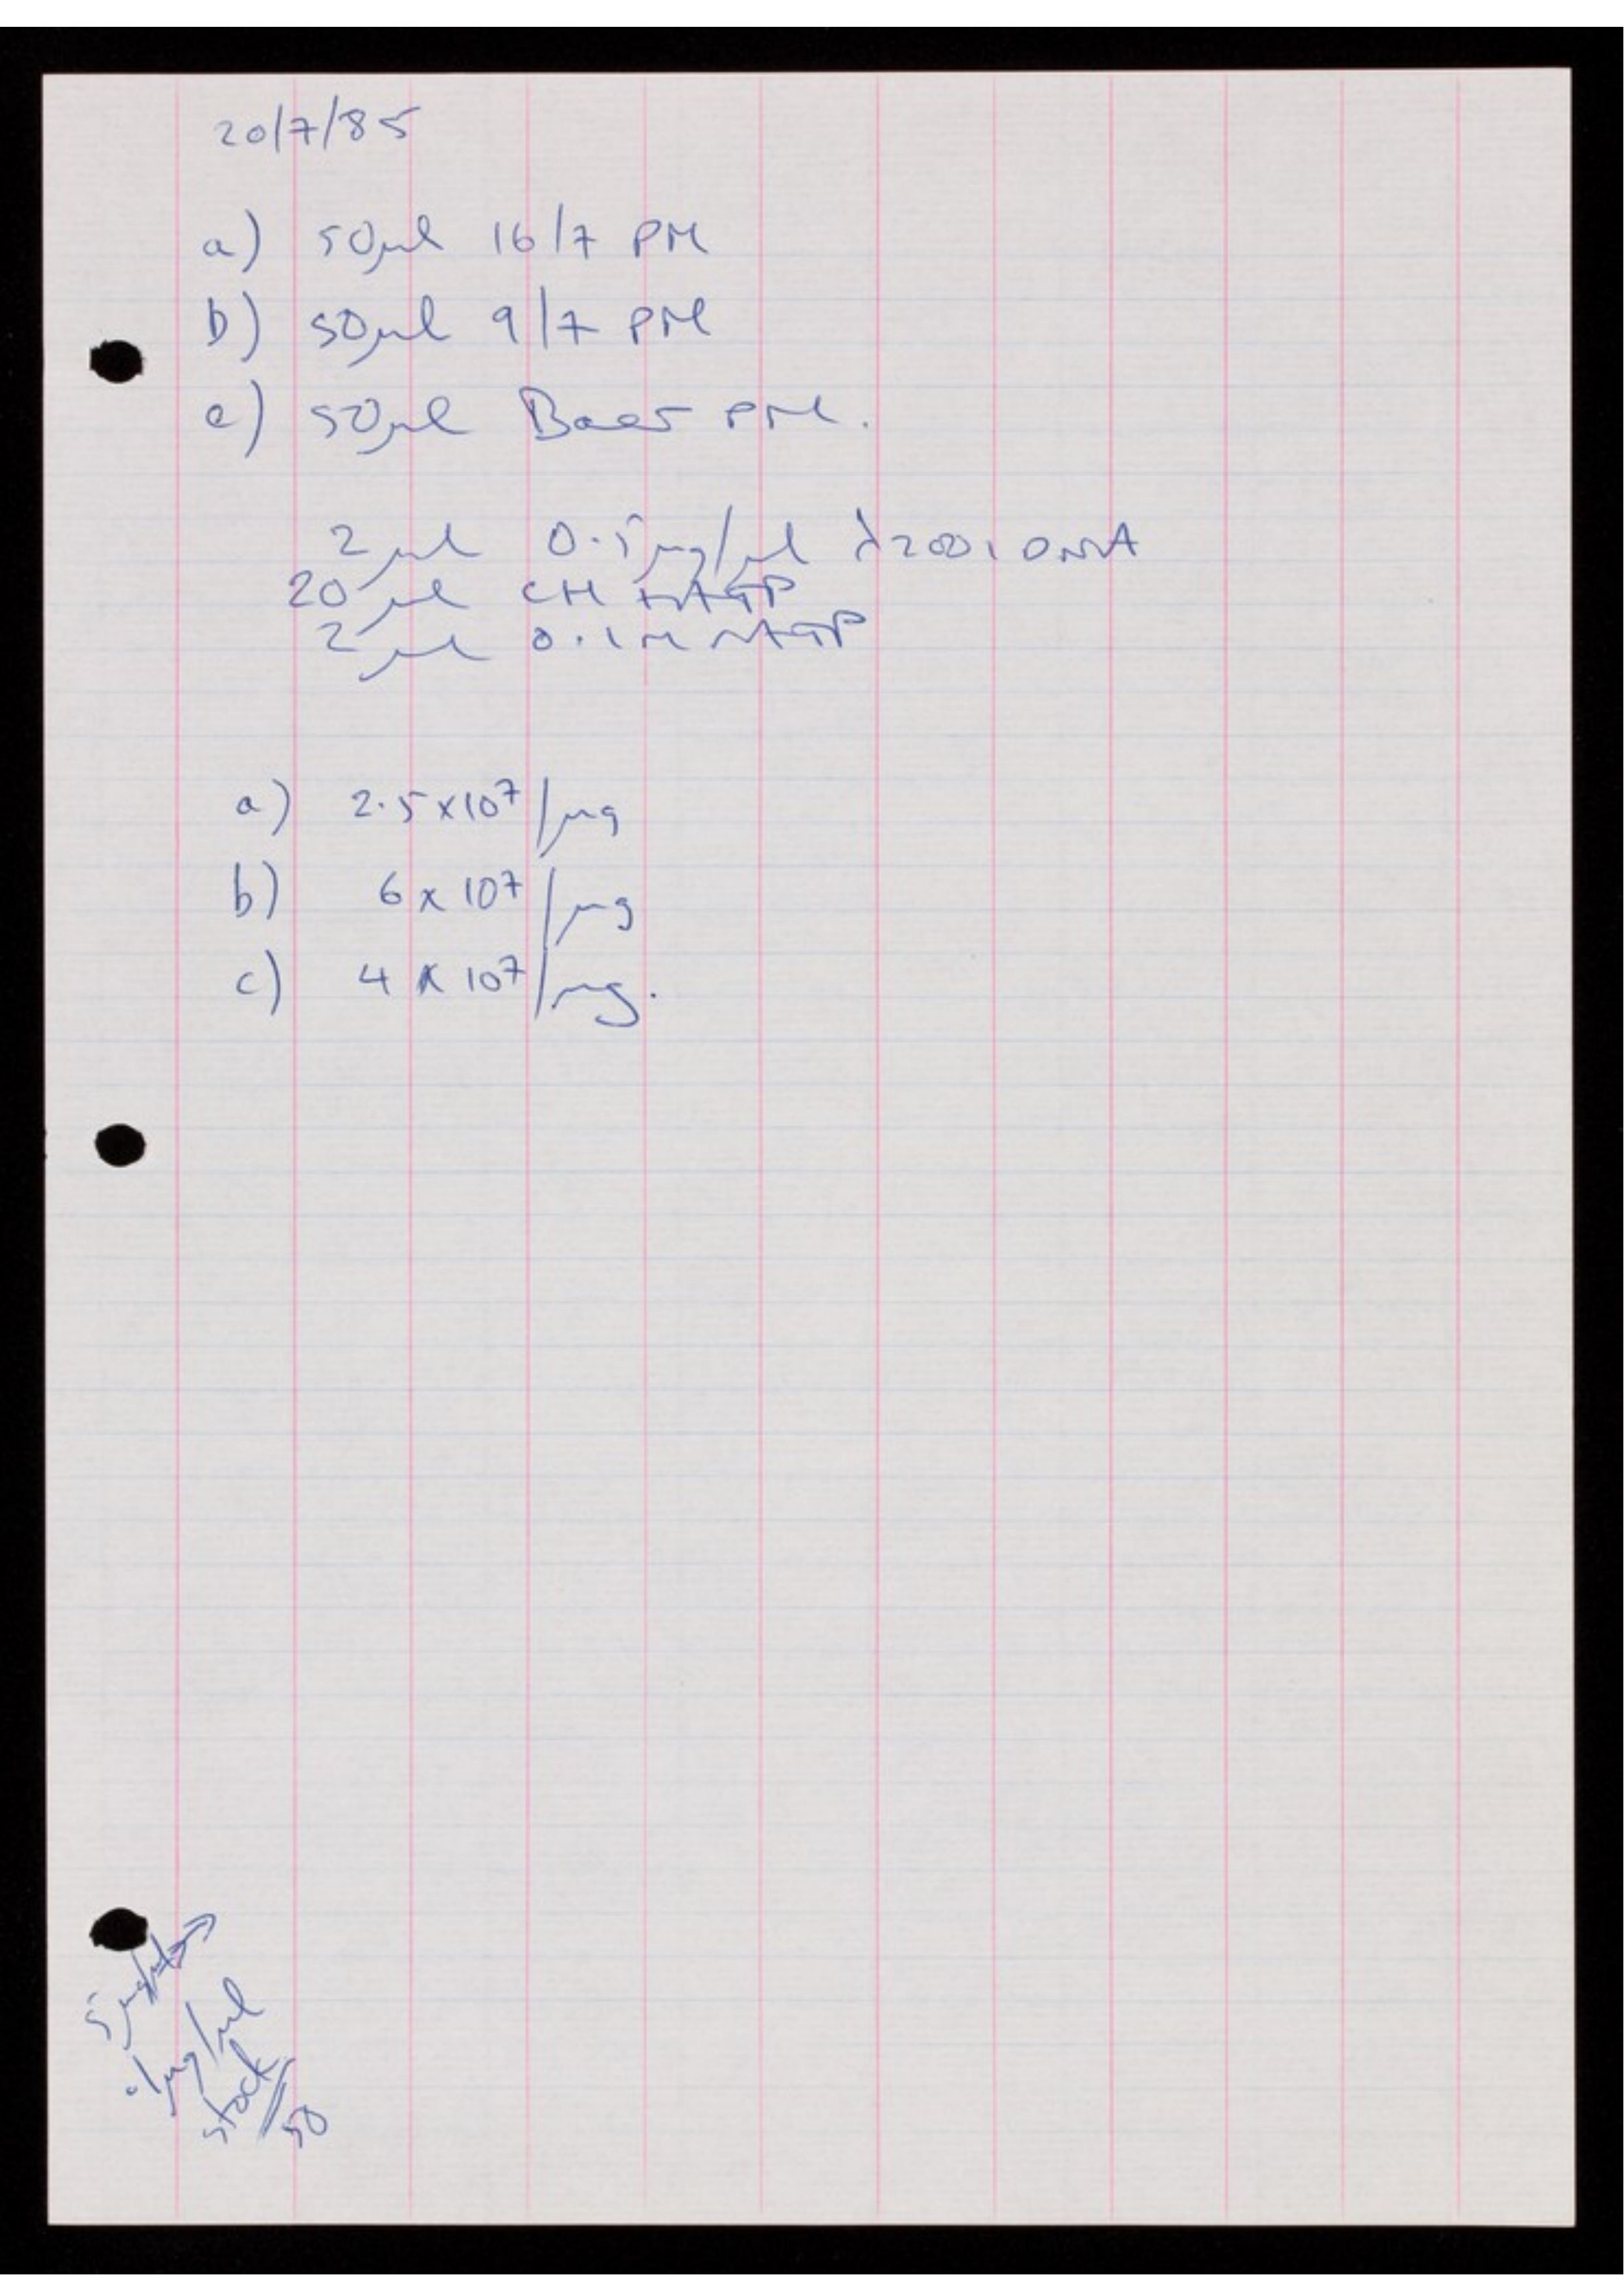 20/7/85
a) 50µl 16/7 PM
b) 50µl 9/7 PM
c) 50µl Baer PM.
2µl 0.5µg/µl λ2001 DNA
20µl CH
2µl 0.1M
a) 2.5x10⁷/µg
b) 6 x 10⁷/µg
c) 4 x 10⁷/µg.
µg/µl
stock
50